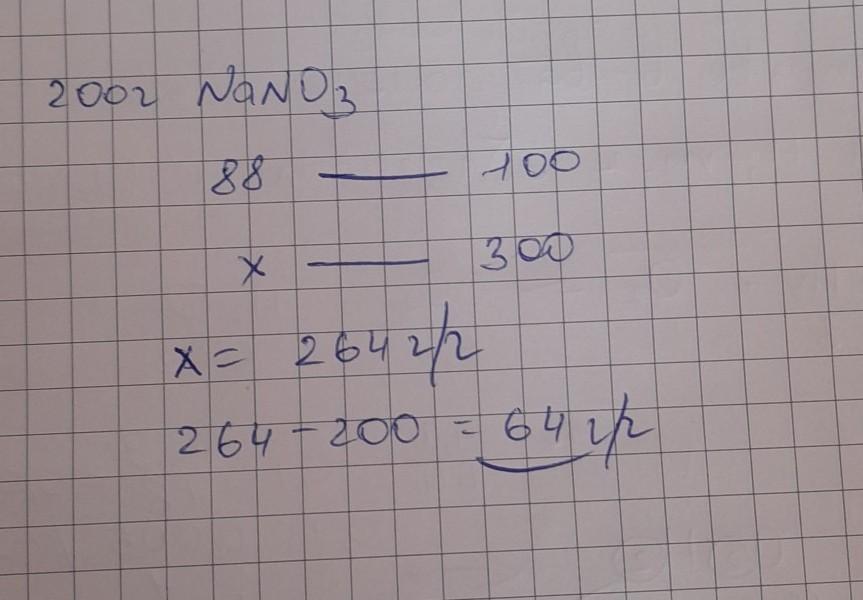 200г NaNO3
88 — 100
x — 300
x = 264 г/г
264 - 200 = 64 г/г